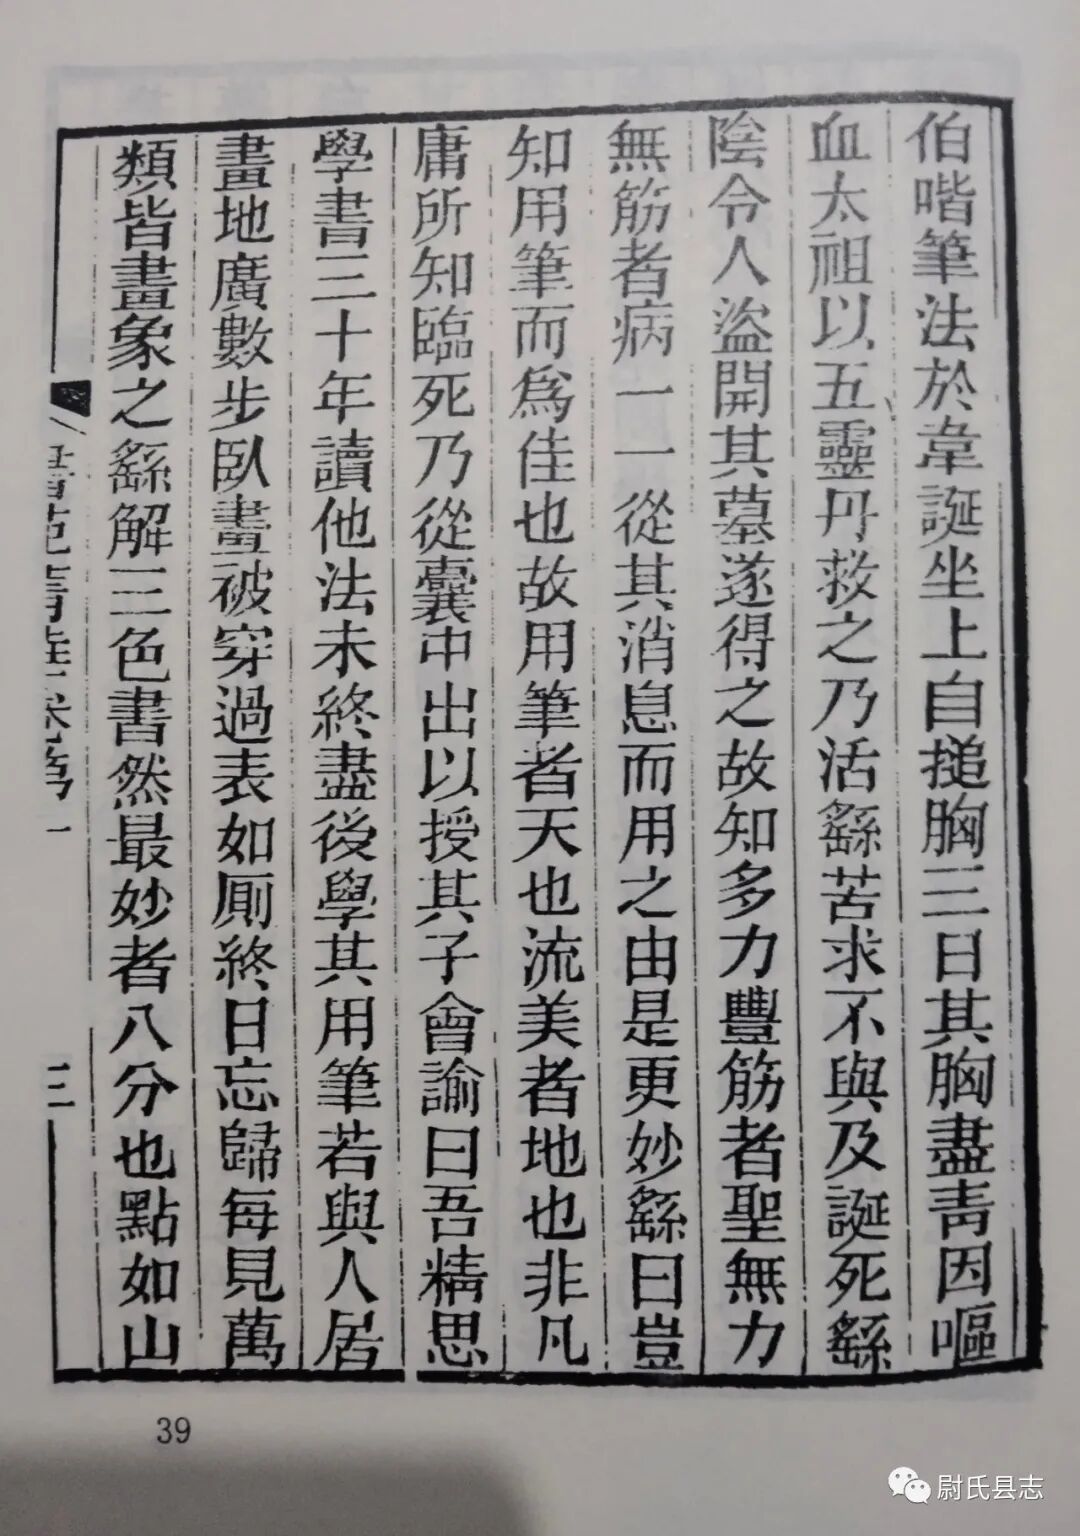 伯喈筆法於韋誕坐上自搥胸三日其胸盡靑因嘔
血太祖以五靈丹救之乃活繇苦求不與及誕死繇
陰令人盜開其墓遂得之故知多力豐筋者聖無力
無筋者病一一從其消息而用之由是更妙繇曰豈
知用筆而爲佳也故用筆者天也流美者地也非凡
庸所知臨死乃從囊中出以授其子會諭曰吾精思
學書三十年讀他法未終盡後學其用筆若與人居
畫地廣數步臥畫被穿過表如厠終日忘歸每見萬
類皆畫象之繇解三色書然最妙者八分也點如山
三
39
尉氏县志